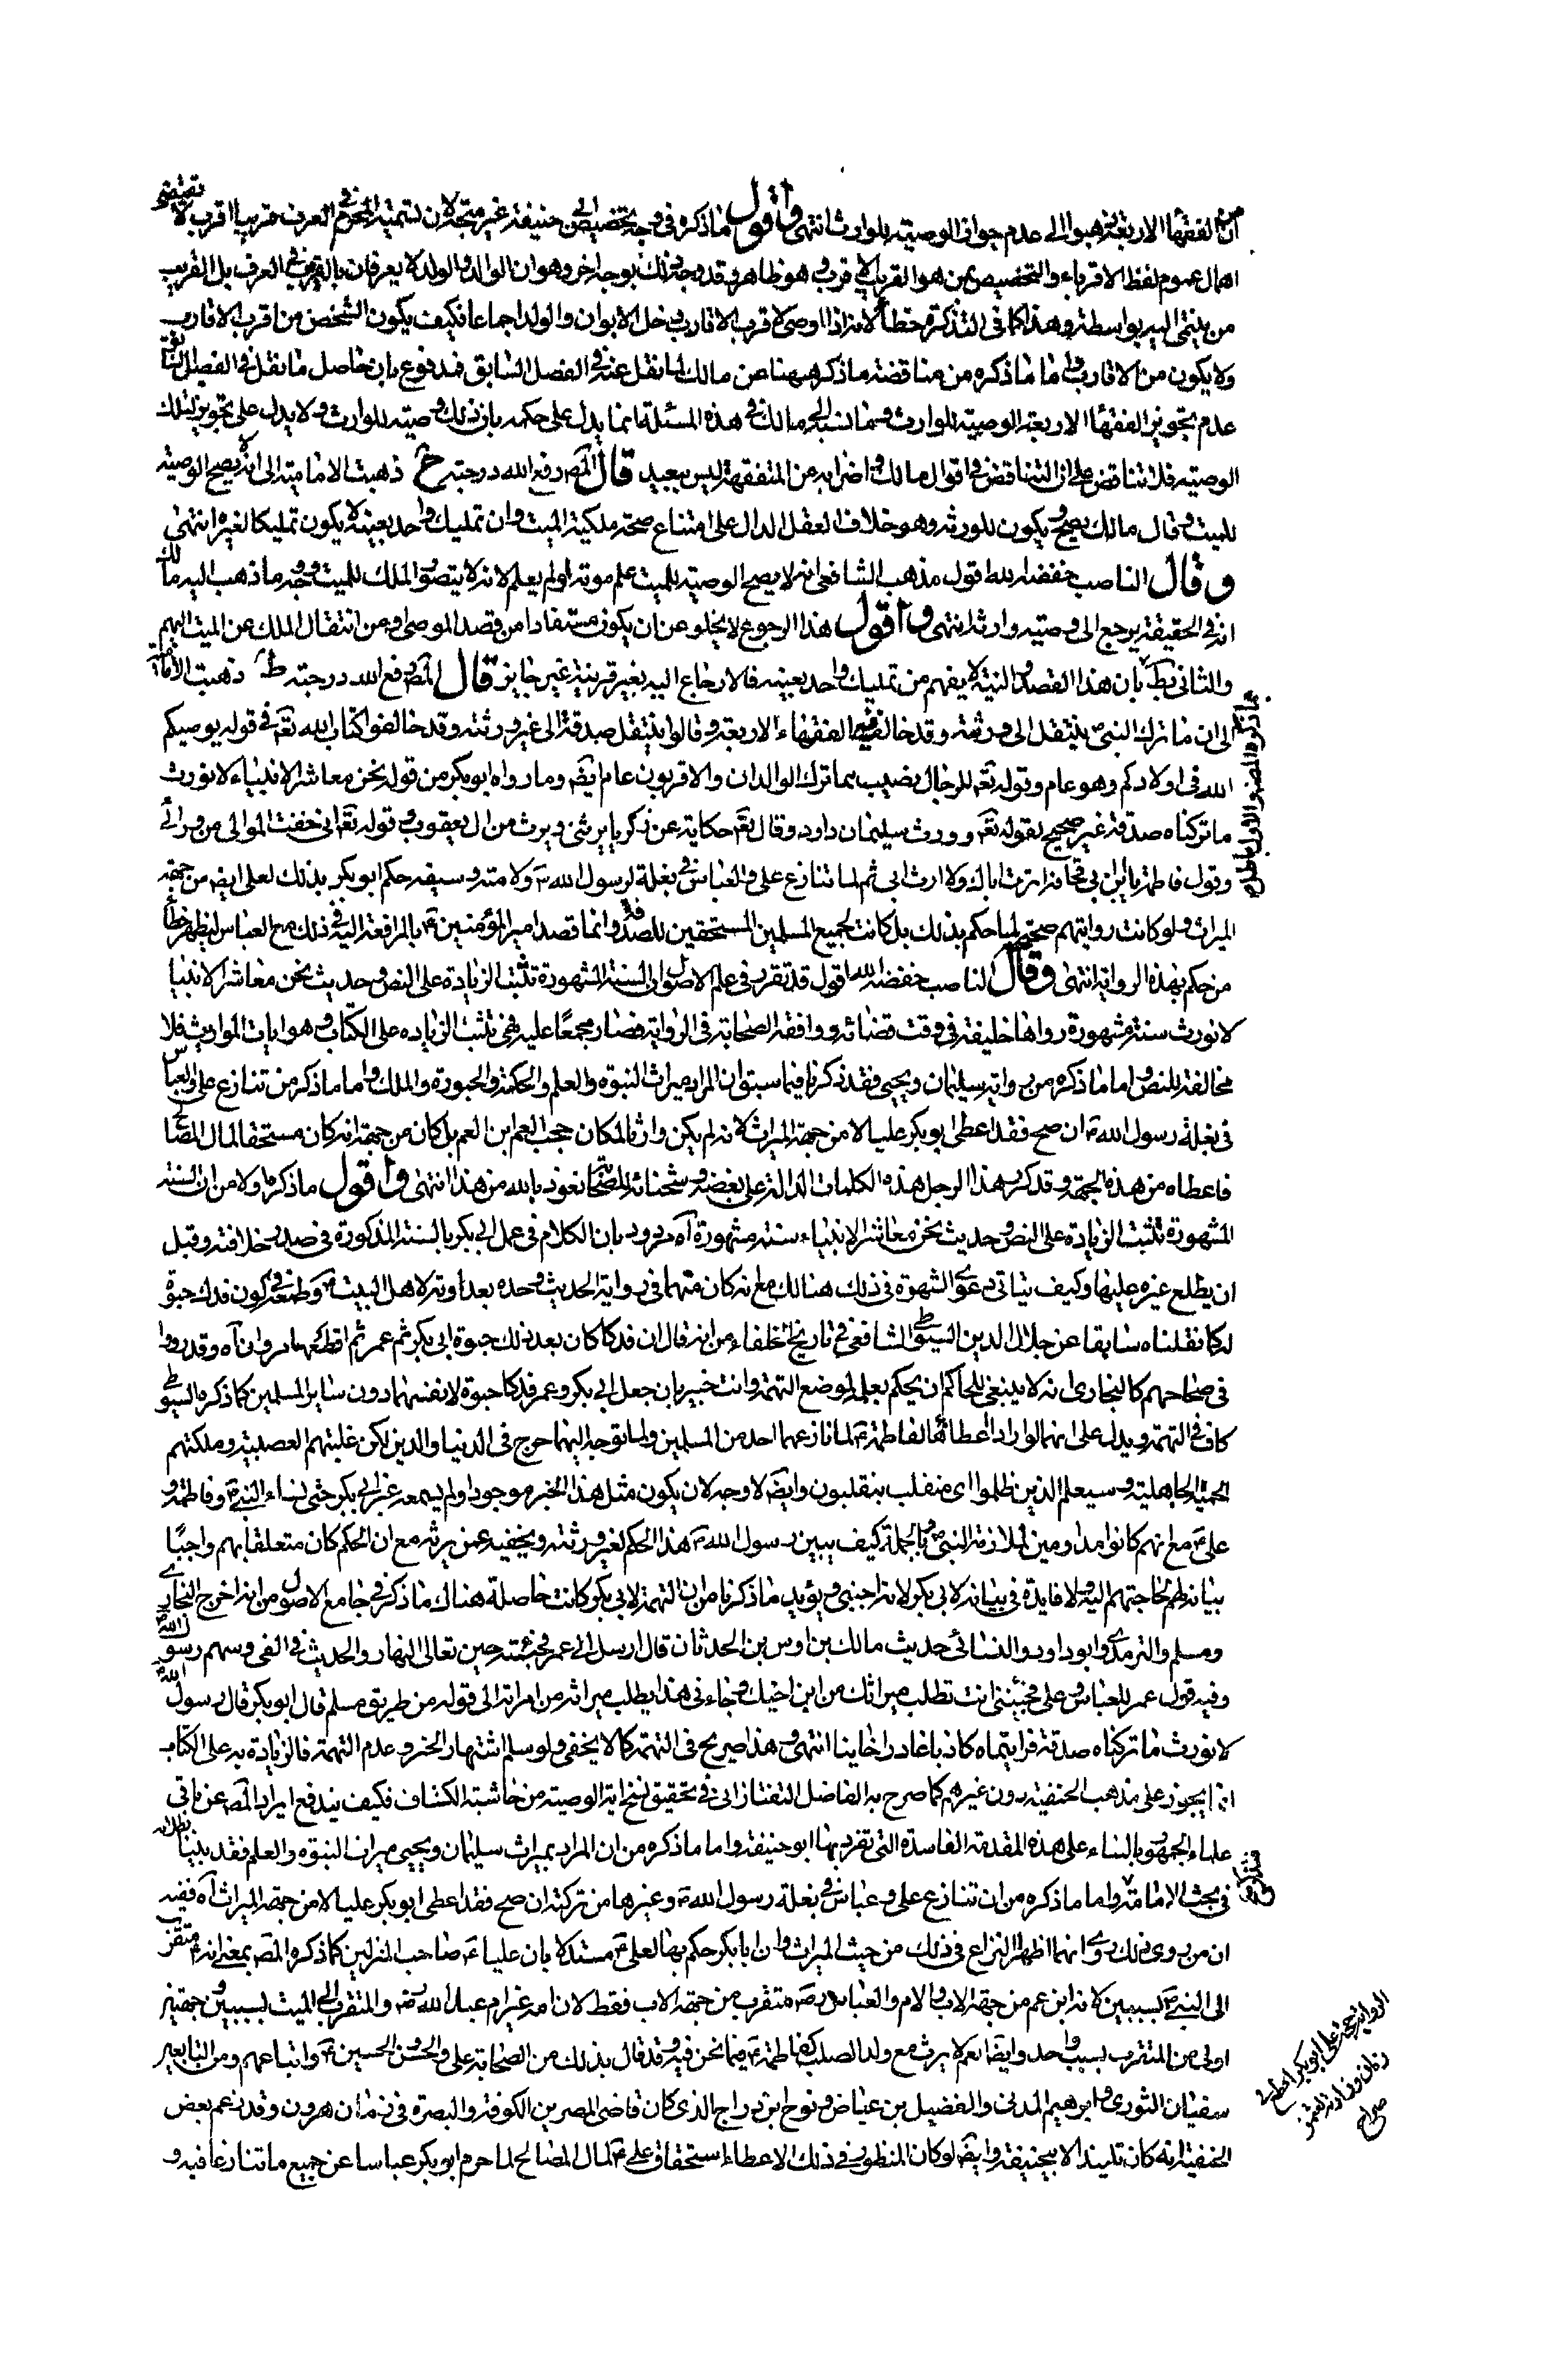 ان الفقها الاربعة ذهبوا الى عدم جواز الوصية للوارث انتهى واقول ما ذكره في وجه تخصيص ابي حنيفة غير متجه لان تسمية المحرم في العرف قريبا اقرب لا تقتضي
اهمال عموم لفظ الاقرباء والتخصيص بمن هو القريب الاقرب وهو ظاهر وقد وجه ذلك بوجه اخر وهو ان الوالد والولد لا يعرفان بالقريب في العرف بل القريب
من ينتمى اليه بواسطة وهذا كما في التذكرة خطأ لانه اذا اوصى لاقرب الاقارب دخل الابوان والولد اجماعا فكيف يكون الشخص من اقرب الاقارب
ولا يكون من الاقارب واما ما ذكره من مناقضة ما ذكر ههنا عن مالك لما نقل عنه في الفصل السابق فمدفوع بان حاصل ما نقل في الفصل السابق
عدم تجويز الفقها الاربعة الوصية للوارث وما نسبه الى مالك في هذه المسئلة انما يدل على حكمه بان ذلك وصية للوارث ولا يدل على تجويز تلك
الوصية فلا تناقض على ان التناقض في اقوال مالك واضرابه من المتفقهة ليس ببعيد قال المص رفع الله درجته ح ذهبت الامامية الى انه لا يصح الوصية
للميت وقال مالك يصح ويكون للورثة وهو خلاف العقل الدال على امتناع صحة ملكية الميت وان تمليك واحد بعينه لا يكون تمليكا لغيره انتهى
وقال الناصب خفضه الله اقول مذهب الشافعي انه لا يصح الوصية للميت علم موته او لم يعلم لانه لا يتصور الملك للميت ووجه ما ذهب اليه مالك
انه في الحقيقة يرجع الى وصية وارثه انتهى واقول هذا الرجوع لا يخلو عن ان يكون مستفادا من قصد الموصي او من انتقال الملك عن الميت اليهم
والثاني بط بان هذا القصد والنية لا يفهم من تمليك واحد بعينه فالارجاع اليه بغير قرينة غير جايز قال المص رفع الله درجته ط ذهبت الامامية
الى ان ما ترك النبي ص ينتقل الى ورثته وقد خالف فيه الفقهاء الاربعة وقالوا ينتقل صدقة الى غير ورثته وقد خالفوا كتاب الله تع في قوله يوصيكم
الله في اولادكم وهو عام وقوله تع للرجال نصيب مما ترك الوالدان والاقربون عام ايض وما رواه ابو بكر من قوله نحن معاشر الانبياء لا نورث
ما تركناه صدقة غير صحيح لقوله تع وورث سليمان داود وقال تع حكاية عن زكريا يرثني ويرث من ال يعقوب وقوله تع اني خفت الموالي من ورائي
وقول فاطمة يابن ابي قحافة اترث اباك ولا ارث ابي ثم لما تنازع علي والعباس في بغلة رسول الله ص ولامته وسيفه حكم ابو بكر بذلك لعلي ايض من جهة
الميراث ولو كانت روايتهم صحيحة لما حكم بذلك بل كانت لجميع المسلمين المستحقين للصدقة وانما قصد امير المؤمنين ع بالمرافعة اليه في ذلك مع العباس ليظهر خطأ
من حكم بهذه الرواية انتهى وقال الناصب خفضه الله اقول قد تقرر في علم الاصول ان السنة المشهورة تثبت الزيادة على النص وحديث نحن معاشر الانبيا
لا نورث سنة مشهورة رواها خليفة في وقت قضائه ووافقه الصحابة في الرواية فصار مجمعا عليه فهي تثبت الزيادة على الكتاب وهو ايات المواريث فلا
مخالفة للنص واما ما ذكره من رواية سليمان ويحيى فقد ذكرنا فيما سبق ان المراد ميراث النبوة والعلم والحكمة والحبورة والملك واما ما ذكر من تنازع علي والعباس
في بغلة رسول الله ص ان صح فقد اعطى ابو بكر عليا لا من جهة الميراث لانه لم يكن وارثا لمكان حجب العم ابن العم بل كان من جهة انه كان مستحقا لمال المصالح
فاعطاه من هذه الجهة وقد كرر هذا الرجل هذه الكلمات الدالة على بغضه وشحنائه للصحابة نعوذ بالله من هذا انتهى واقول ما ذكره اولا من ان السنة
المشهورة تثبت الزيادة على النص وحديث نحن معاشر الانبياء سنة مشهورة اه مردود بان الكلام في عمل ابي بكر بالسنة المذكورة في صدر خلافته وقبل
ان يطلع غيره عليها وكيف يتاتى دعوى الشهرة في ذلك هنالك مع انه كان متهما في رواية الحديث وحده بعداوته لاهل البيت ع وطمعه في كون فدك حبوة
له كما نقلناه سابقا عن جلال الدين السيوطي الشافعي في تاريخ الخلفاء من انه قال ان فدكا كان بعد ذلك حبوة ابي بكر ثم عمر ثم اقطعها مروان اه وقد رووا
في صحاحهم كالبخاري انه لا ينبغي للحاكم ان يحكم بعلمه لموضع التهمة وانت خبير بان جعل ابي بكر وعمر فدكا حبوة لانفسهما دون ساير المسلمين كما ذكره السيوطي
كاف في التهمة ويدل على انهما لو ارادا اعطائها لفاطمة ع لما نازعهما احد من المسلمين ولما توجه اليهما حرج في الدنيا والدين لكن غلبتهم العصبية وملكتهم
الحمية الجاهلية وسيعلم الذين ظلموا اى منقلب ينقلبون وايض لا وجه لان يكون مثل هذا الخبر موجودا ولم يسمعه غير ابي بكر حتى نساء النبي ص وفاطمة و
علي ع مع انهم كانوا مداومين لملازمة النبي ص وبالجملة كيف يبين رسول الله ص هذا الحكم لغير ورثته ويخفيه عمن يرثه مع ان الحكم كان متعلقا بهم واجبا
بيانه لهم لحاجتهم اليه ولا فايدة في بيانه لابي بكر لانه اجنبي ويؤيد ما ذكرنا من ان التهمة لابي بكر كانت حاصلة هناك ما ذكر في جامع الاصول من انه اخرج البخاري
ومسلم والترمذي وابو داود والنسائي حديث مالك بن اوس بن الحدثان قال ارسل الي عمر فجئته حين تعالى النهار والحديث في الفي وسهم رسول الله ص
وفيه قول عمر للعباس وعلي فجئتني انت تطلب ميراثك من ابن اخيك وجاءني هذا يطلب ميراثه من امراته الى قوله من طريق مسلم قال ابو بكر قال رسول الله ص
لا نورث ما تركناه صدقة فرايتماه كاذبا غادرا خاينا انتهى وهذا صريح في التهمة كما لا يخفى ولو سلم اشتهار الخبر وعدم التهمة فالزيادة به على الكتاب
انما يجوز على مذهب الحنفية دون غيرهم كما صرح به الفاضل التفتازاني في تحقيق نسخ اية الوصية من حاشية الكشاف فكيف يندفع ايراد المص عن باقي
علماء الجمهور بالبناء على هذه المقدمة الفاسدة التي تفرد بها ابو حنيفة واما ما ذكره من ان المراد بميراث سليمان ويحيى ميراث النبوة والعلم فقد بينا بطلانه
في بحث الامامة واما ما ذكره من ان تنازع علي وعباس في بغلة رسول الله ص وغيرها من تركته ان صح فقد اعطى ابو بكر عليا لا من جهة الميراث اه ففيه
ان من روى ذلك روى انهما اظهرا النزاع في ذلك من حيث الميراث وان ابا بكر حكم بها لعلي ع مستدلا بان عليا ع صاحب المنزلين كما ذكره المص بمعنى انه ع متقرب
الى النبي ص بسببين لانه ابن عم من جهة الاب والام والعباس رض متقرب من جهة الاب فقط لان امه غير ام عبد الله رض والمتقرب الى الميت بسببين وجهتين
اولى من المتقرب بسبب واحد وايضا العم لا يرث مع ولد الصلب كفاطمة ع فيما نحن فيه وقد قال بذلك من الصحابة علي والحسن والحسين ع واتباعهم ومن التابعين
سفيان الثوري وابرهيم المدني والفضيل بن عياض ونوح ابن دراج الذي كان قاضي المصرين الكوفة والبصرة في زمان هرون وقد زعم بعض
الحنفية انه كان تلميذا لابي حنيفة وايض لو كان المنظور في ذلك الاعطاء استحقاق علي ع لمال المصالح لما حرم ابو بكر عباسا عن جميع ما تنازعا فيه و